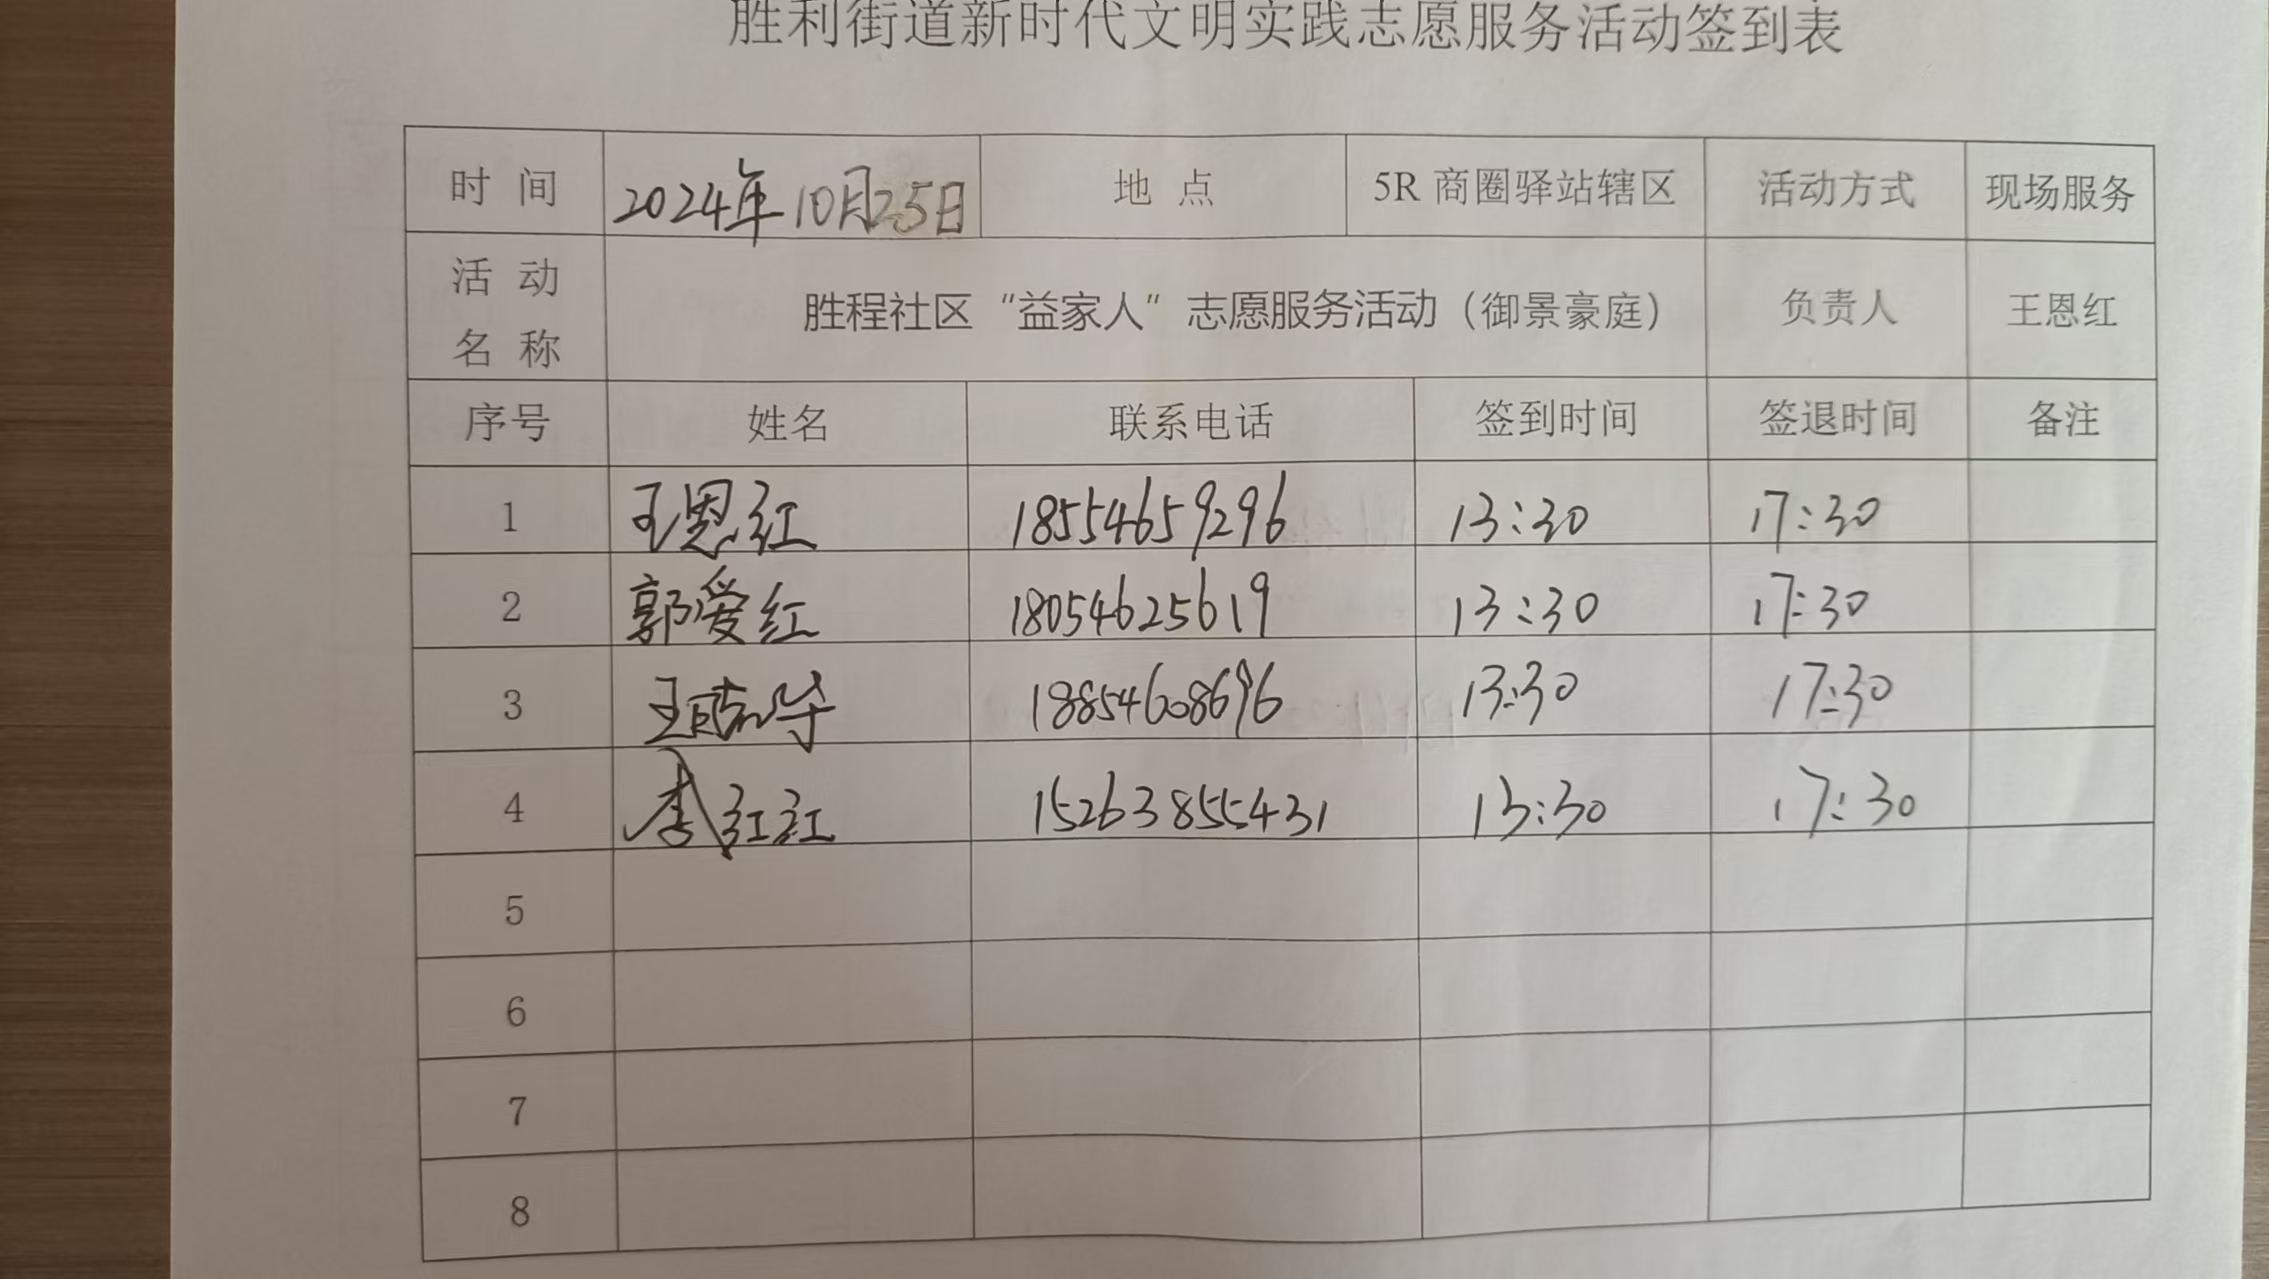 胜利街道新时代文明实践志愿服务活动签到表
时 间 2024年10月25日 地 点 5R 商圈驿站辖区 活动方式 现场服务
活 动
名 称 胜程社区“益家人”志愿服务活动（御景豪庭） 负责人 王恩红
序号 姓名 联系电话 签到时间 签退时间 备注
1 王恩红 18554659296 13:30 17:30
2 郭爱红 18054625619 13:30 17:30
3 王 华 18854608696 13:30 17:30
4 李红红 15263855431 13:30 17:30
5
6
7
8